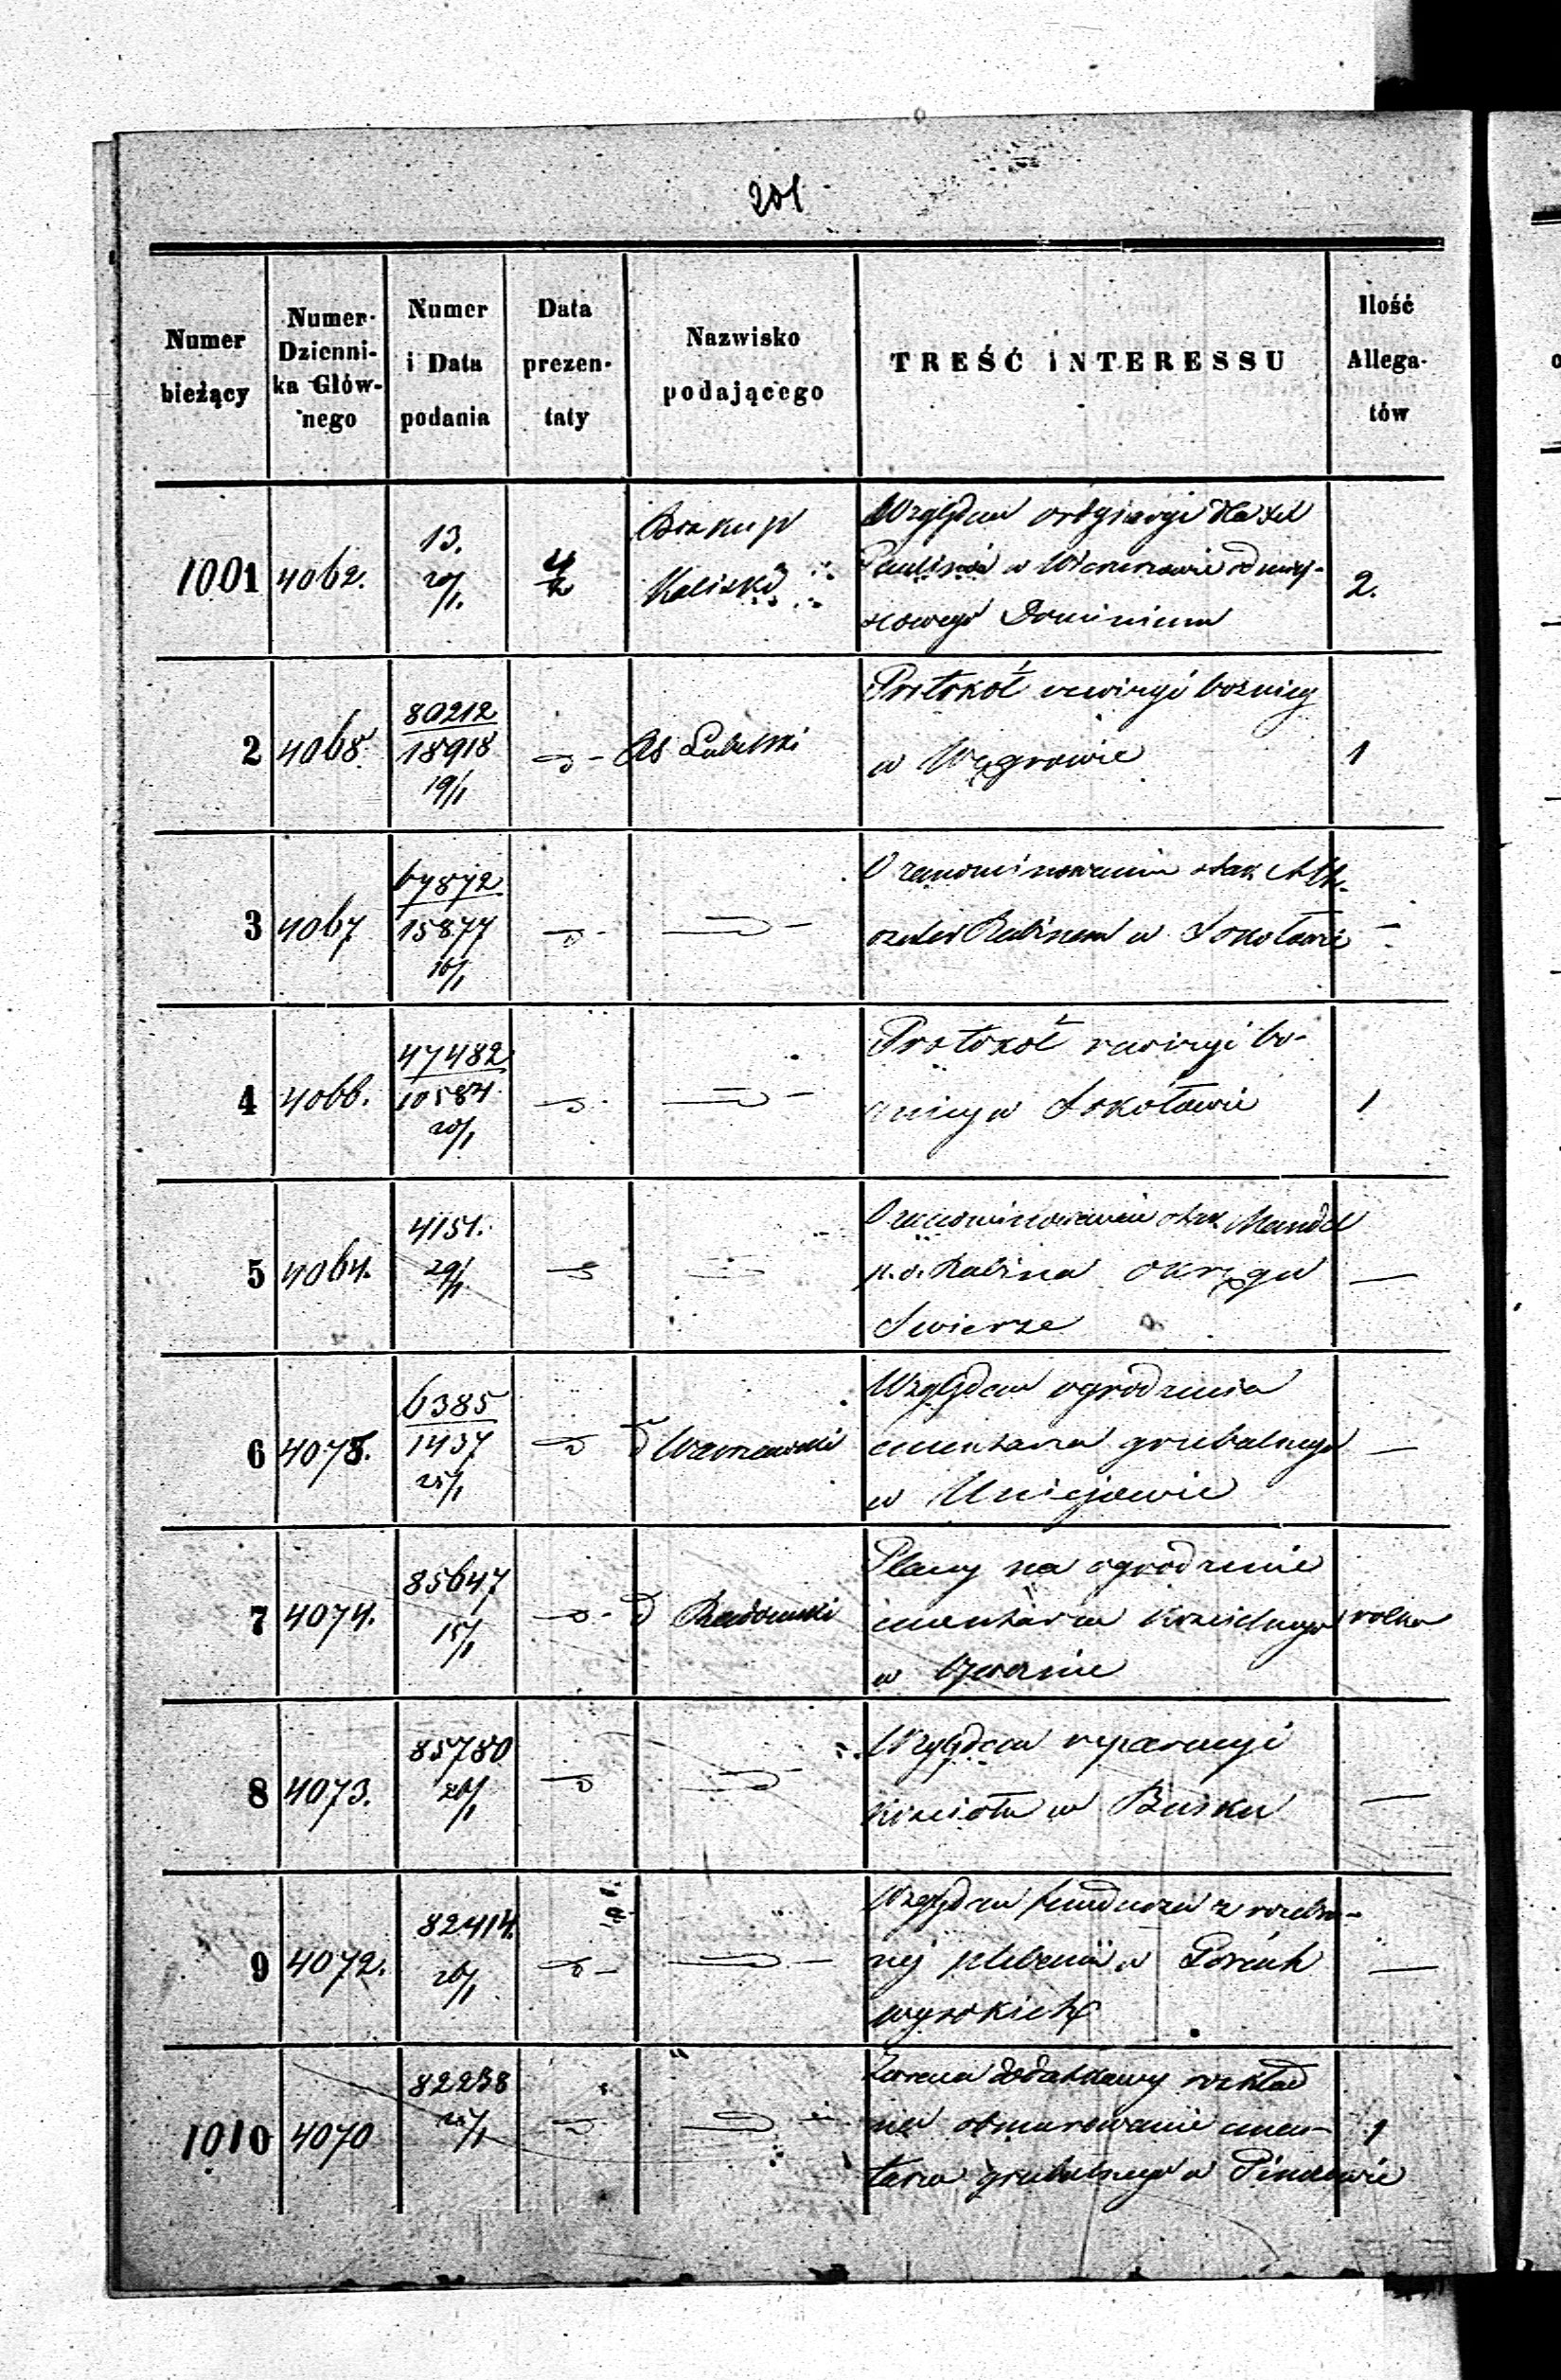 201
Numer bieżący
Numer Dzienni-ka Głów-nego
Numer i Data podania
Data prezen-taty
Nazwisko podającego
TREŚĆ INTERESSU
Ilość Allega-tów
1001 4062. 13. 20/1. 4/2 Biskup Kaliski
Względem
Paulinów w Wieruszowie od miej-
scowego Dominium
2.
2 4068 80212 18918 19/1 RG Lubelski
Protokół rewizyi bożnicy
w Węgrowie
1
3 4067 67872 15877 16/1
O zanominowaniu
Rabinem w Sokołowie
4 4066. 47482 10584 20/1
Protokół rewizyi bo-
żnicy w Sokołowie
1
5 4064. 4151. 29/1
O zanominowaniu Mandel
p.o. Rabina okręgu
Swierze
6 4075. 6385 1437 25/1 d° Warszawski
Względem ogrodzenia
cmentarza grzebalnego
w Uniejowie
7 4074. 85647 15/1 d° Radomski
Plany na ogrodzenie
cmentarza Kościelnego
w
rolka
8 4073. 85780 26/1
Względem reparacyi
kościoła w Busku
9 4072. 82414. 26/1
Względem funduszu z rozebra-
nej plebanii w Górach
wysokich
1010 4070 82238 25/1
Zwraca dodatkowy rozkład
na obmurowanie cmen-
tarza grzebalnego w Pinczowie
1